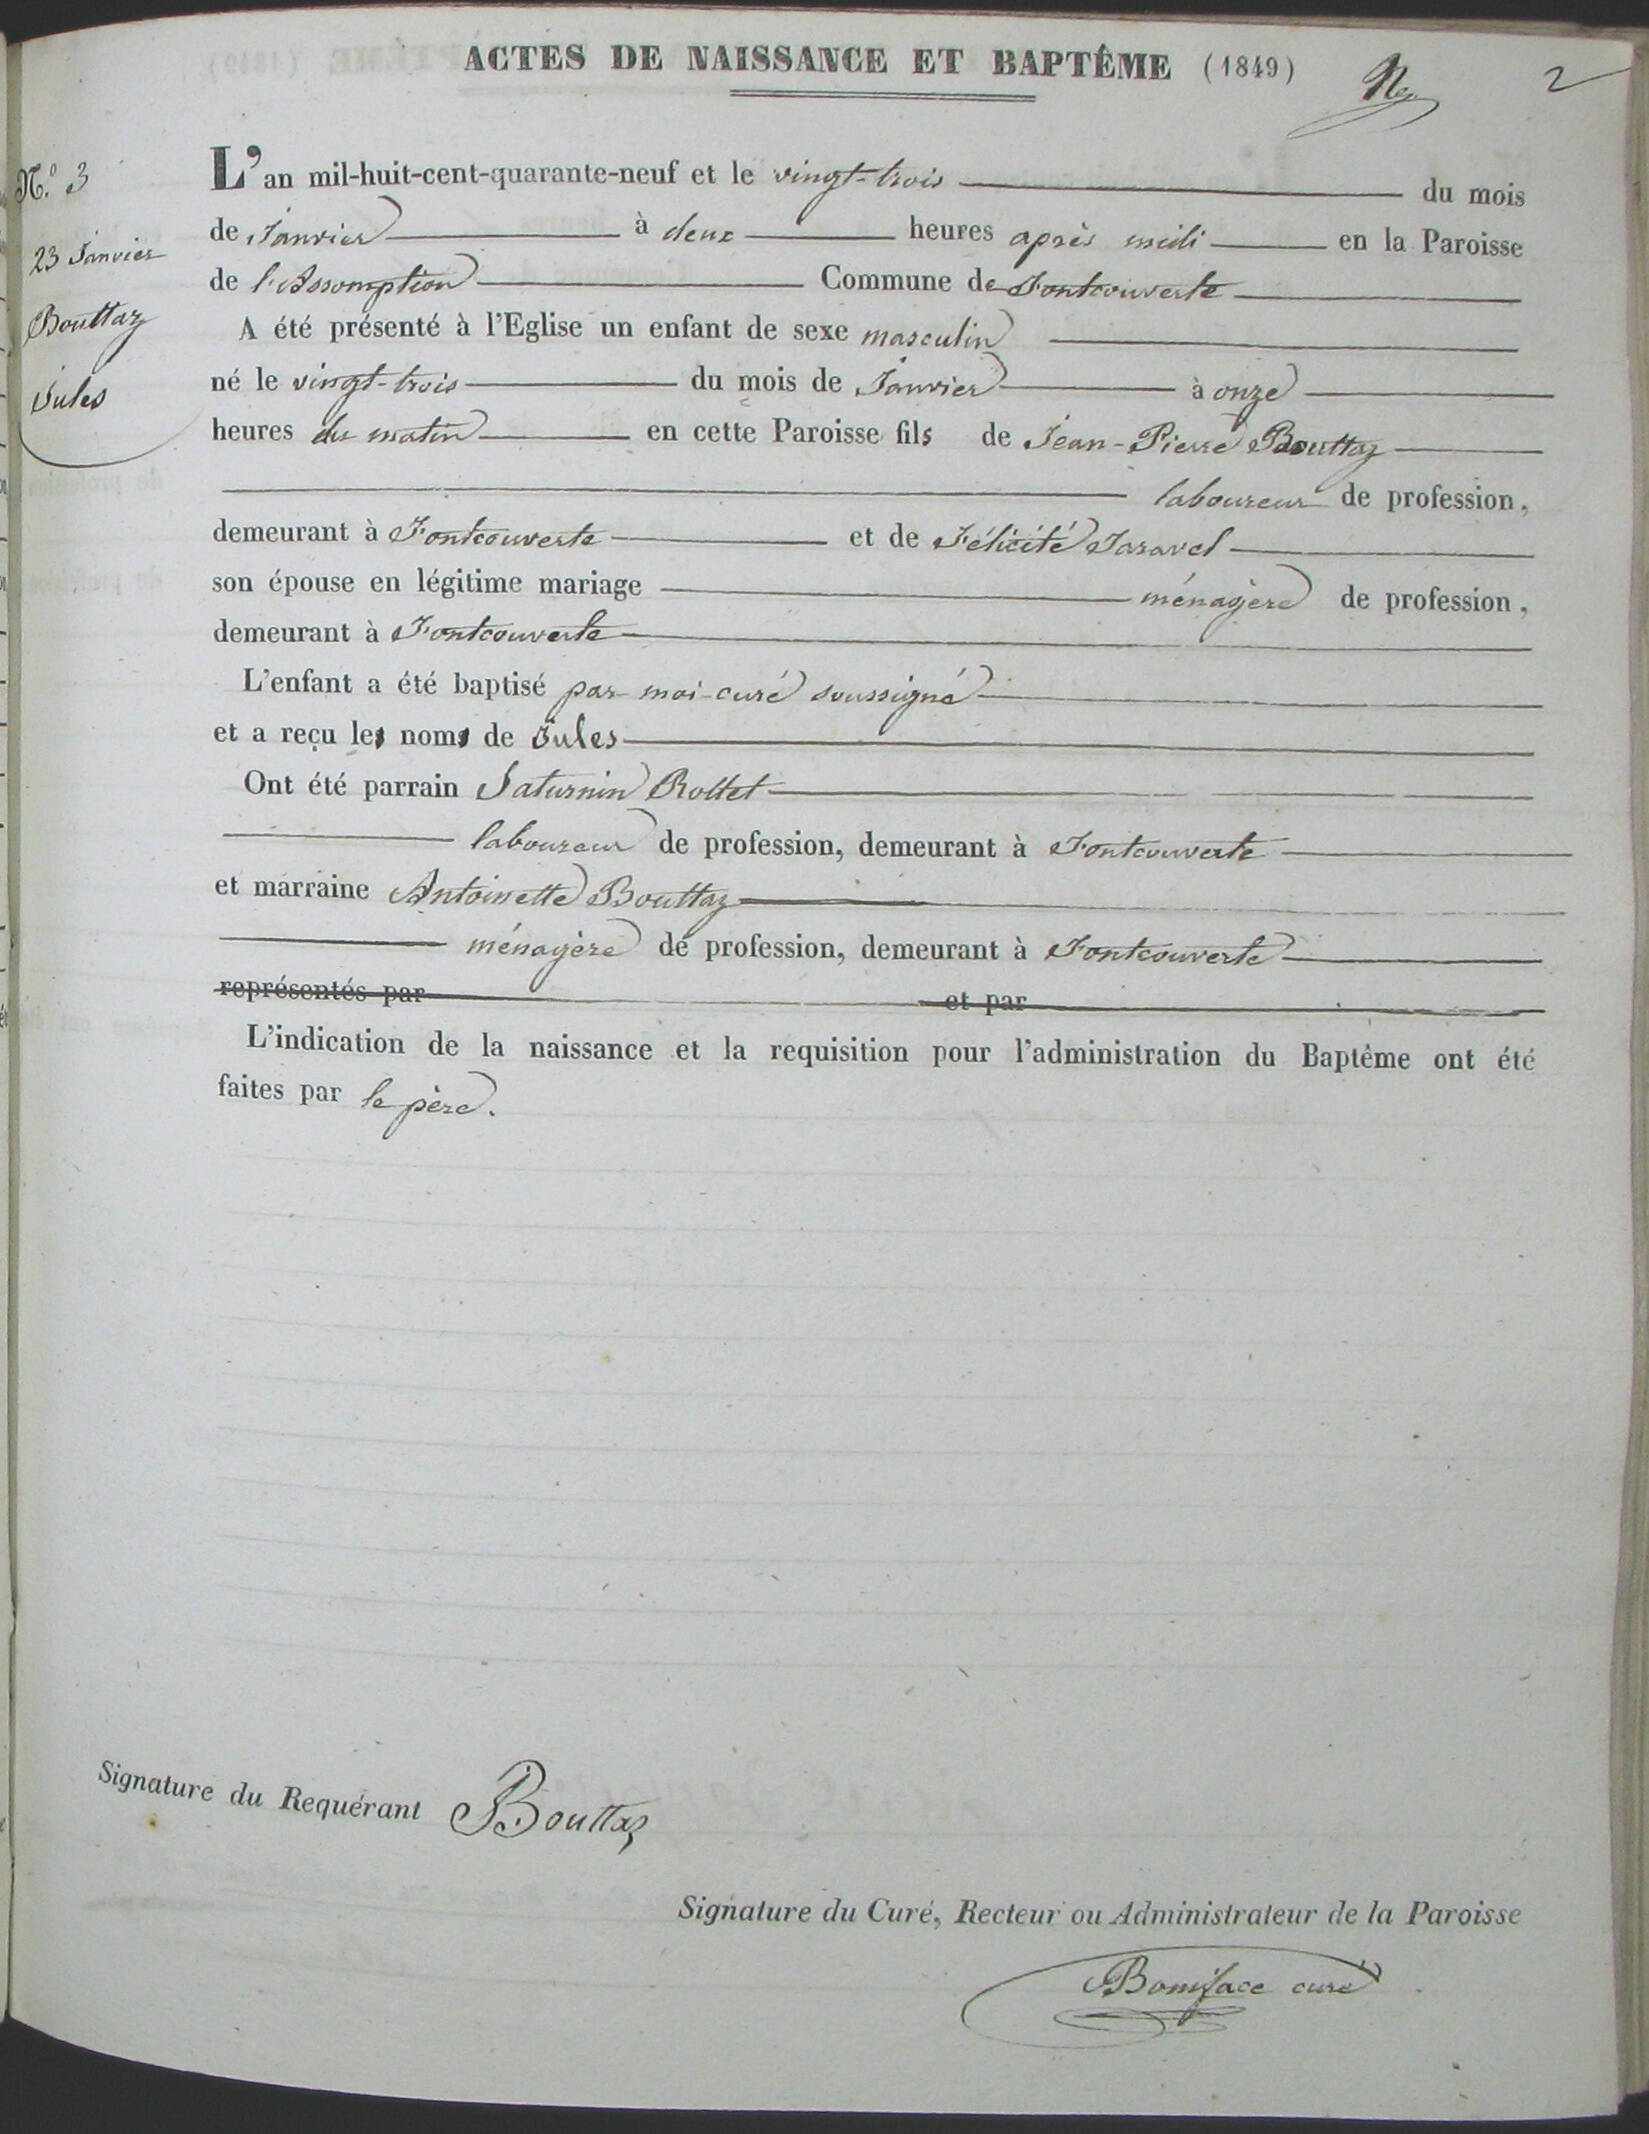 ACTES DE NAISSANCE ET BAPTÊME (1849)
2
N.º 3
23 Janvier
Bouttaz
Jules
L'an mil-huit-cent-quarante-neuf et le vingt-trois du mois
de Janvier à deux heures après midi en la Paroisse
de l'Assomption Commune de Fontcouverte
A été présenté à l'Eglise un enfant de sexe masculin
né le vingt-trois du mois de Janvier à onze
heures du matin en cette Paroisse fils de Jean-Pierre Bouttaz
laboureur de profession,
demeurant à Fontcouverte et de Félicité Taravel
son épouse en légitime mariage ménagère de profession,
demeurant à Fontcouverte
L'enfant a été baptisé par moi curé soussigné
et a reçu les noms de Jules
Ont été parrain Saturnin Rollet
laboureur de profession, demeurant à Fontcouverte
et marraine Antoinette Bouttaz
ménagère de profession, demeurant à Fontcouverte
représentés par et par
L'indication de la naissance et la requisition pour l'administration du Baptême ont été
faites par le père.
Signature du Requérant Bouttaz
Signature du Curé, Recteur ou Administrateur de la Paroisse
Boniface curé